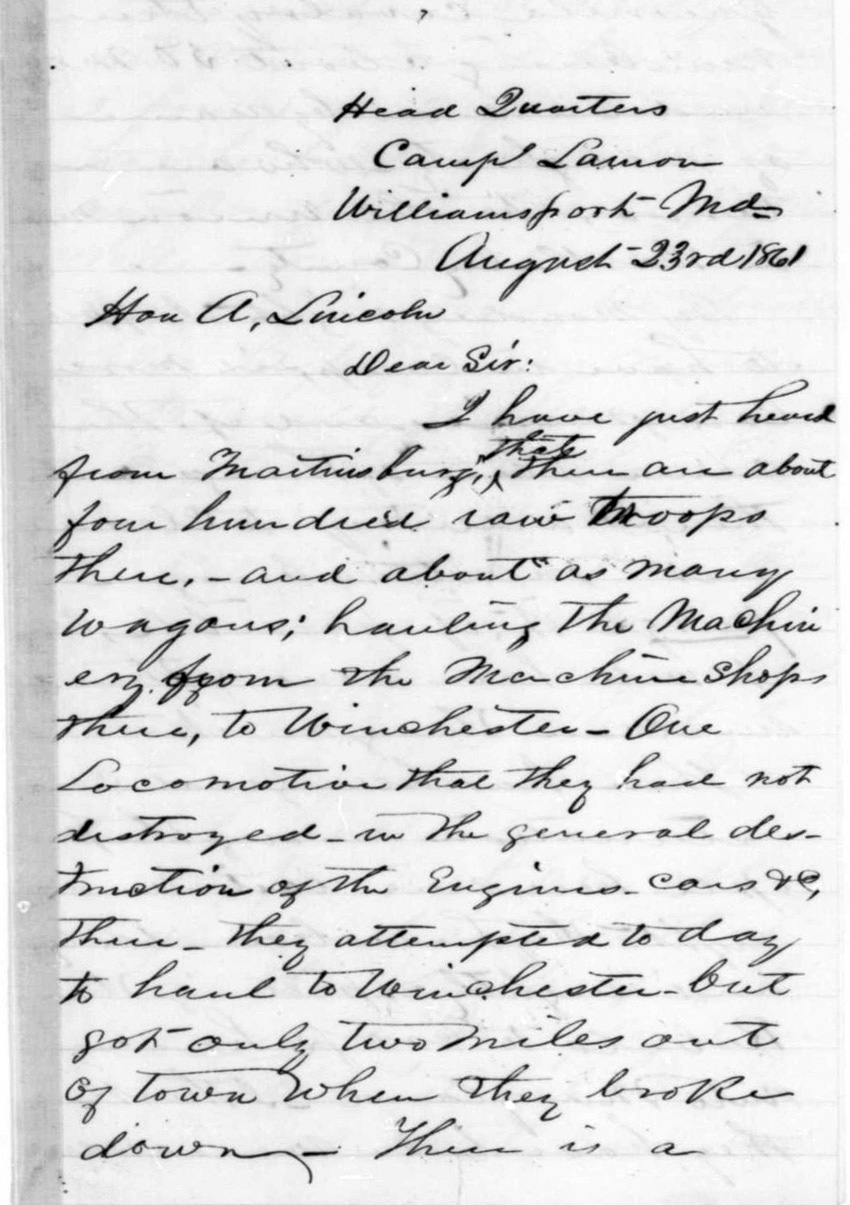 Head Quarters
Camp Lamon
Williamsport Md
August 23rd 1861
Hon A, Lincoln
Dear Sir:
I have just heard
that
from Martinsburg, there are about
four hundred raw troops
there, - and about as many
wagons; hauling the Machin
ery from the Machine Shops
there, to Winchester - One
Locomotive that they had not
destroyed - in the general des-
truction of the Engines - cars &c,
there - they attempted to day
to haul to Winchester - but
got only two miles out
of town when they broke
down - There is a